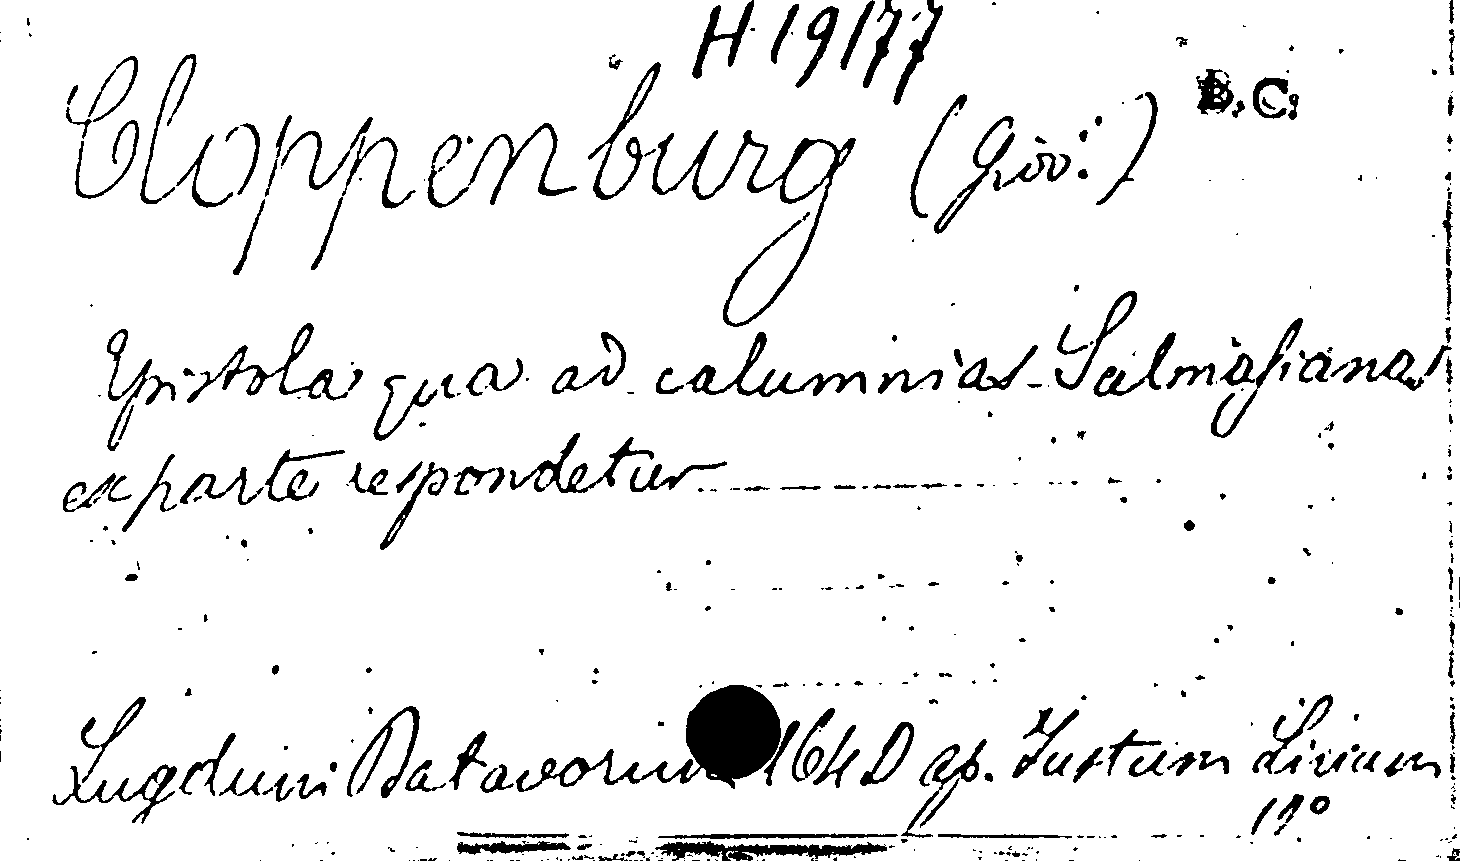 H 19177
B.C.
Cloppenburg (Giov:)
Epistola qua ad calumnias Salmasianas
ex parte respondetur
Lugduni Batavorum 1640 ap. Justum Livium
12°